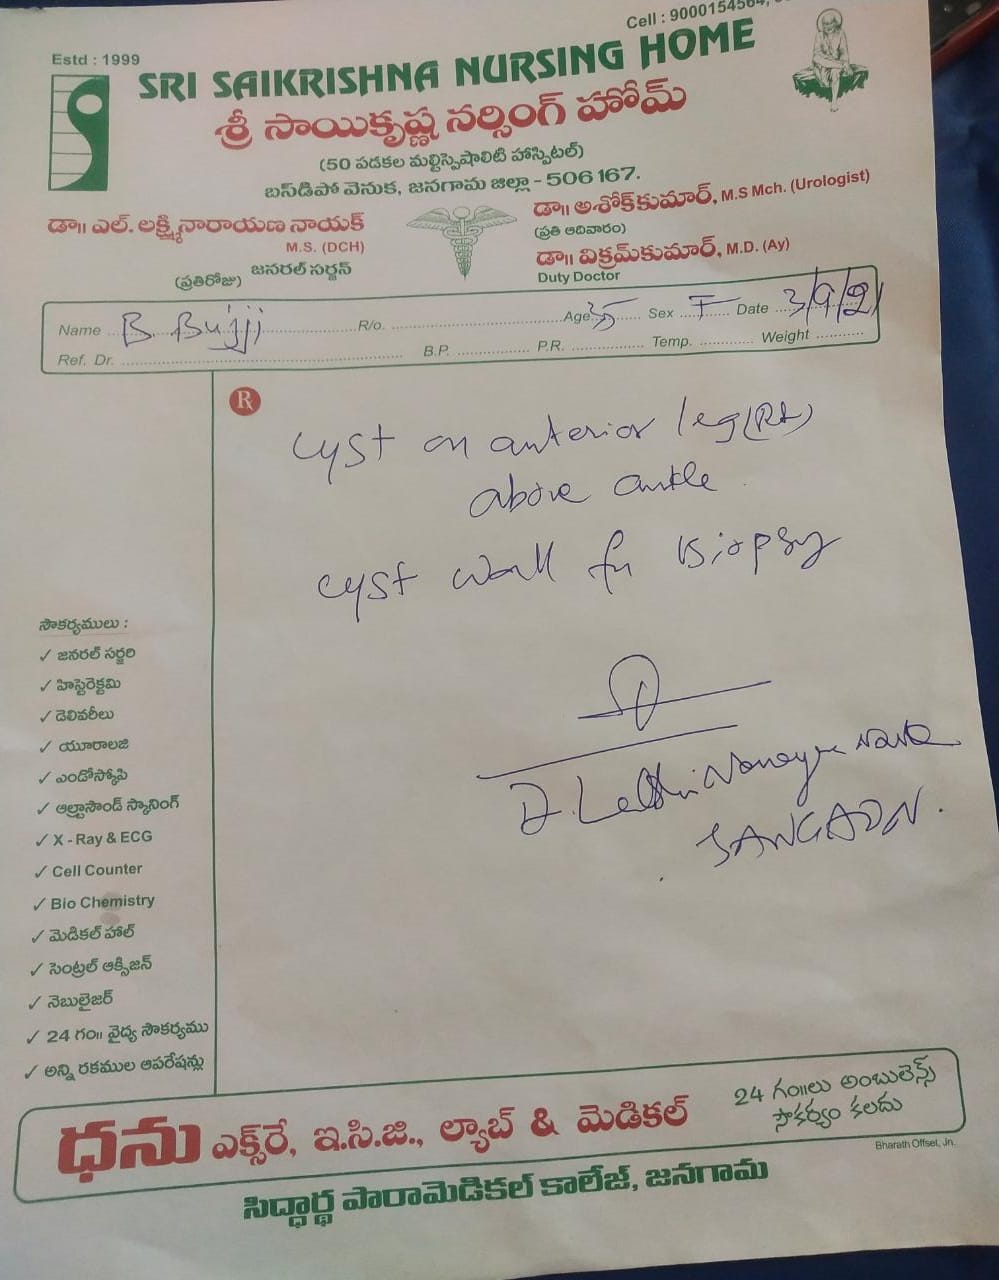 Cell : 9000154564,
Estd : 1999
SRI SAIKRISHNA NURSING HOME
శ్రీ సాయికృష్ణ నర్సింగ్ హోమ్
(50 పడకల మల్టిస్పెషాలిటి హాస్పిటల్)
బస్‌డిపో వెనుక, జనగామ జిల్లా - 506 167.
డా॥ ఎల్. లక్ష్మినారాయణ నాయక్
M.S. (DCH)
(ప్రతిరోజు) జనరల్ సర్జన్
డా॥ అశోక్‌కుమార్, M.S Mch. (Urologist)
(ప్రతి ఆదివారం)
డా॥ విక్రమ్‌కుమార్, M.D. (Ay)
Duty Doctor
Name B Bujji R/o. Age 35 Sex F Date 3/9/21
Ref. Dr. B.P. P.R. Temp. Weight
R
cyst on anterior leg (Rt)
above ankle
cyst wall for Biopsy
సౌకర్యములు :
✓ జనరల్ సర్జరి
✓ హిస్టెరెక్టమి
✓ డెలివరీలు
✓ యూరాలజి
✓ ఎండోస్కోపి
✓ అల్ట్రాసౌండ్ స్కానింగ్
✓ X - Ray & ECG
✓ Cell Counter
✓ Bio Chemistry
✓ మెడికల్ హాల్
✓ సెంట్రల్ ఆక్సిజన్
✓ నెబులైజర్
✓ 24 గం॥ వైద్య సౌకర్యము
✓ అన్ని రకముల ఆపరేషన్లు
JANGAON.
ధను ఎక్స్‌రే, ఇ.సి.జి., ల్యాబ్ & మెడికల్
24 గం॥లు అంబులెన్స్
సౌకర్యం కలదు
Bharath Offset, Jn.
సిద్ధార్థ పారామెడికల్ కాలేజ్, జనగామ